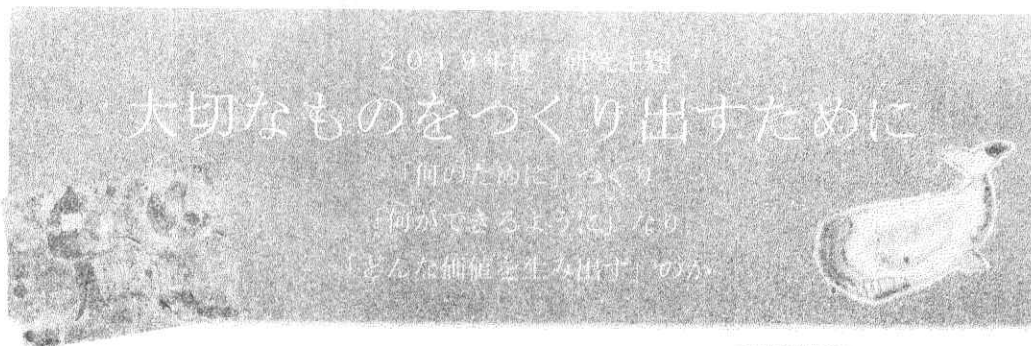 2019年度 研究主題
大切なものをつくり出すために
「何のために」つくり
「何ができるように」なり
「どんな価値を生み出す」のか